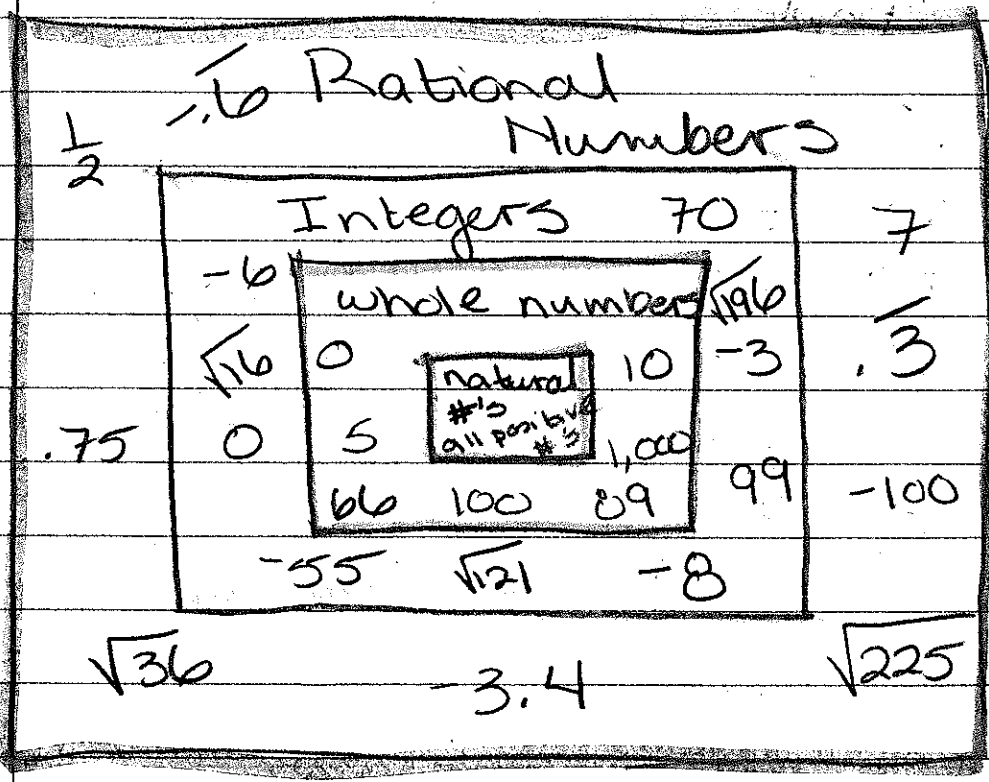 -.6̅ Rational
Numbers
1/2
Integers 70
7
-6
whole numbers √196
√16 0 10 -3
.3̅
natural
#'s
all positive
#'s
.75 0 5 1,000
66 100 89 99 -100
-55 √121 -8
√36 -3.4 √225